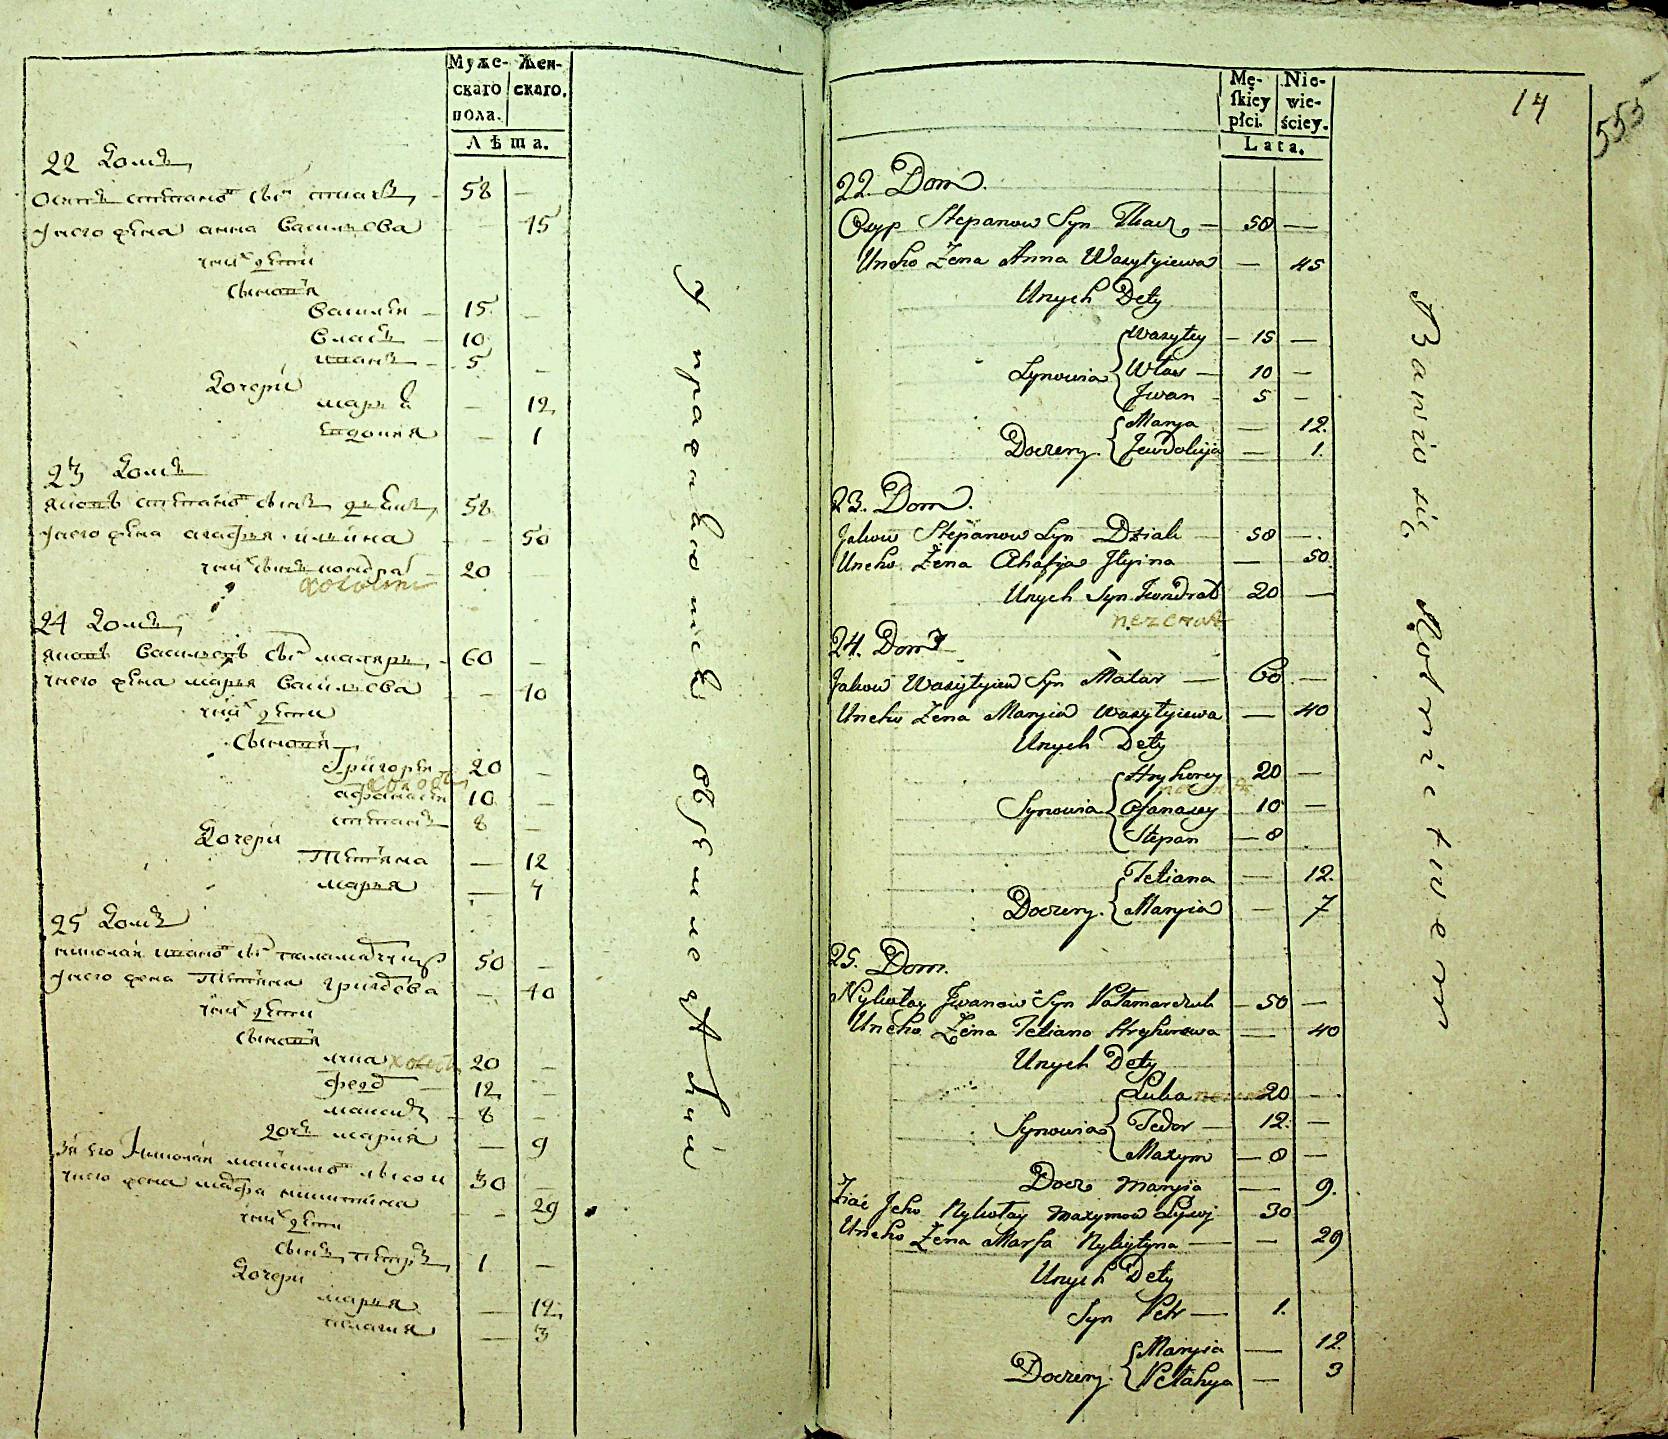 Муже-
скаго
пола.
Жен-
скаго.
Лѣта.
22 домъ
58
у него жена анна василѣва 45
у них дети
сыновя
василѣи 15
власъ 10
иванъ 5
дочери
марья 12
евдокия 1
23 домъ
яковъ степановъ сынъ 58
у него жена агафья илѣина 50
у них сынъ кондрат 20
холости
24 домъ
яковъ василѣевъ сынъ маляръ 60
у него жена марья василѣва 40
у них дети
сыновя
Григорѣи 20
афанасеи 10
степанъ 8
дочери
Тетяна 12
марья 7
25 домъ
николаи иванов сынъ паламарчукъ 50
у него жена Тетяна григорова 40
у них дети
сыновя
лука 20
федор 12
максимъ 8
дочь мария 9
зять его николаи максимов лысои 30
у него жена марфа никитина 29
у них дети
сынъ петръ 1
дочери
марья 12
пелагия 3
У пражняются
обще
Mę-
skiey
płci.
Nie-
wie-
ściey.
Lata.
14
555
22. Dom.
Osyp Stepanow Syn Tkacz — 58 —
Uneho Żena Anna Wasylyiewa — 45
Unych Dety
Synowia Wasyley — 15 —
Włas — 10 —
Jwan 5 —
Doczery Marya — 12.
Jewdokija — 1.
23. Dom.
Jakow Stepanow Syn Dziak — 58 —
Uneho Żena Ahafia Jlyina — 50
Unych Syn Kondrat 20 —
nezenat
24. Dom
Jakow Wasylyiew Syn Malar — 60 —
Uneho Żena Maryia Wasylyiewa — 40
Unych Dety
Synowia Hryhorey 20 —
Ofanasey 10 —
Stepan — 8
Doczery. Tetiana — 12.
Maryia — 7
25. Dom.
Nykołay Jwanow Syn Pałamarczuk — 50 —
Uneho Żena Tetiana Hryhorewa — 40
Unych Dety
Synowia Łuka 20 —
Fedor — 12. —
Maxym — 8 —
Docz Maryia — 9.
Ziać Jeho Nykołay Maxymow Łysoj 30
Uneho Żena Marfa Nykytyna — — 29
Unych Dety
Syn Petr — 1.
Doczery. Maryia — 12.
Pełahya — 3
Bawio się Rolnictwem